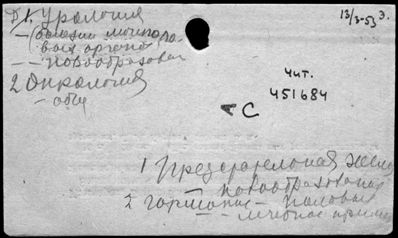 1. Урология
— (болезни мочепо-
ловых органов)
— — новообразован
2 Онкология
— общ
13/3-53 з.
Чит.
451684
С
1 Предстательная желе
новообразования
2 гормоны — половые
— — лечебное приме